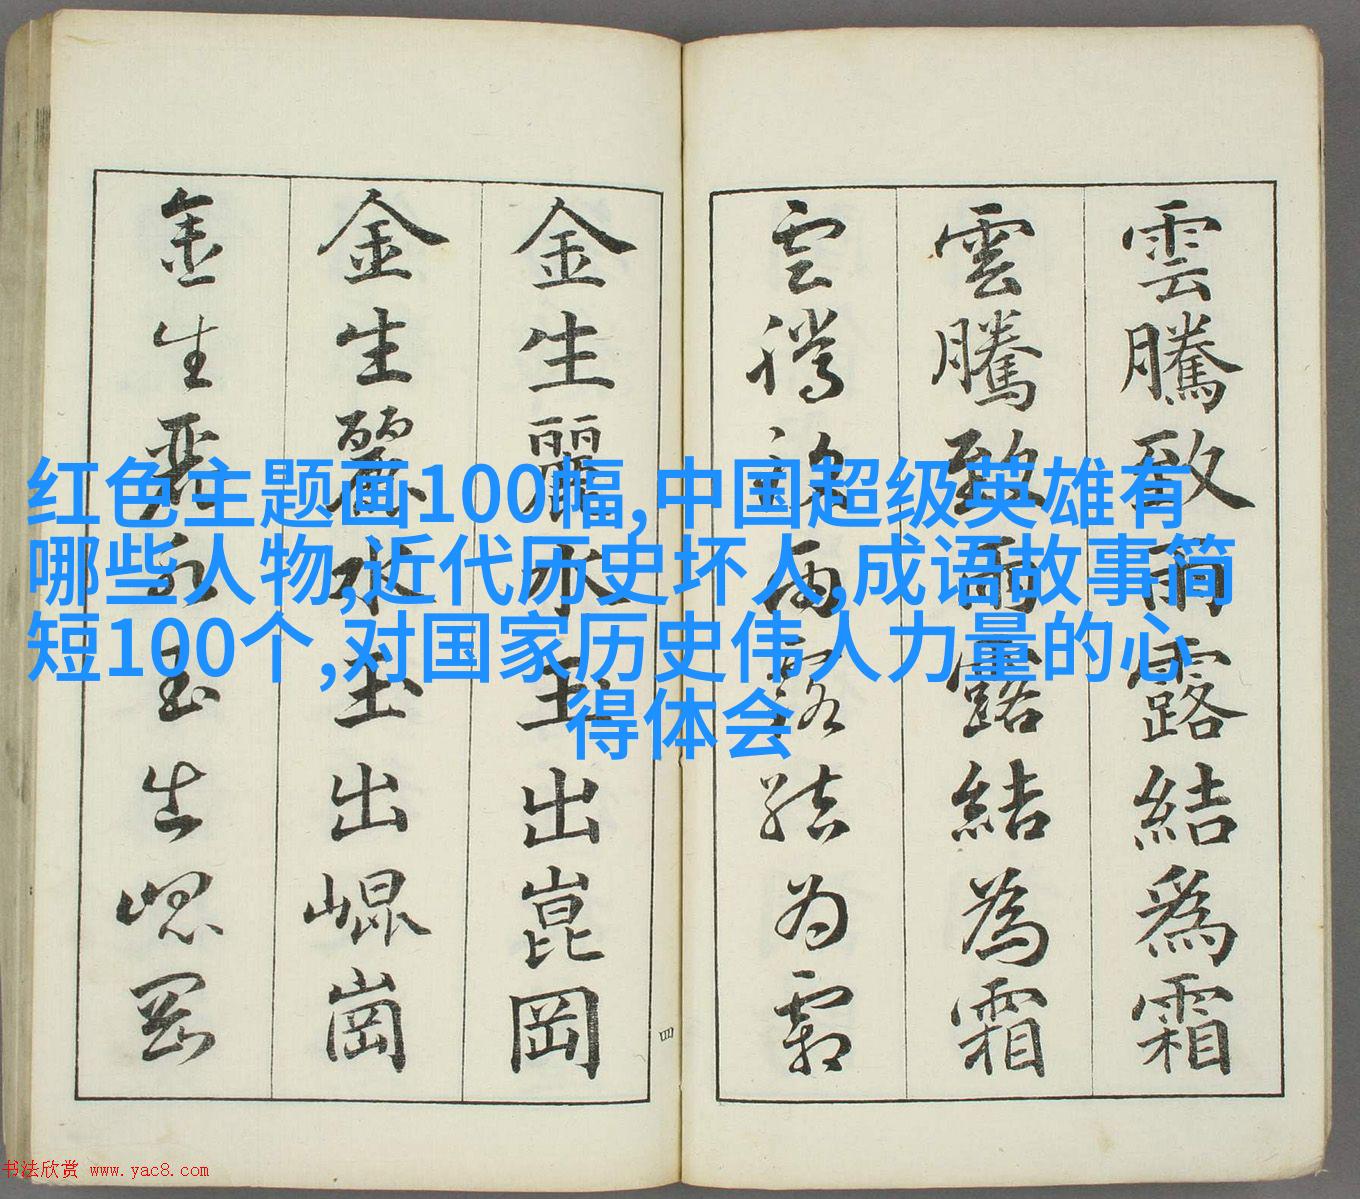 红色主题画100幅,中国超级英雄有
哪些人物,近代历史坏人,成语故事简
短100个,对国家历史伟人力量的心
得体会
雲騰致雨露結爲霜
雲騰致雨露結為霜
雲騰致雨露結为霜
金生麗水玉出崑岡
金生麗水玉出崐崗
金生麗水玉出崐岡
四
书法欣赏 www.yac8.com